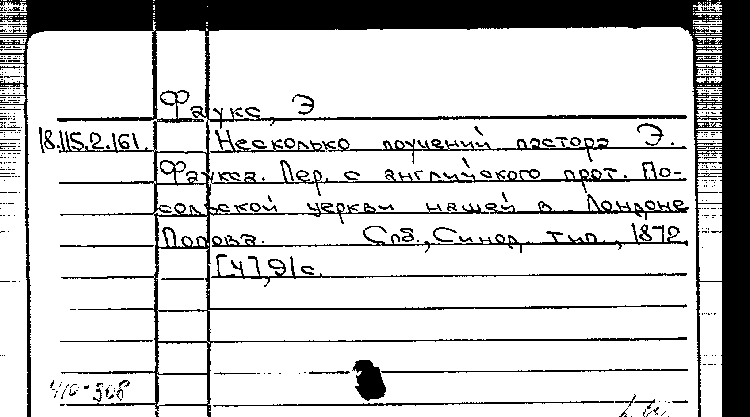 Фаукс, Э
18.115.2.161. Несколько поучений пастора Э.
Фаукса. Пер. с английского прот. По-
сольской церкви нашей в Лондоне
Попова. Спб., Синод. тип., 1872
[4], 91 с.